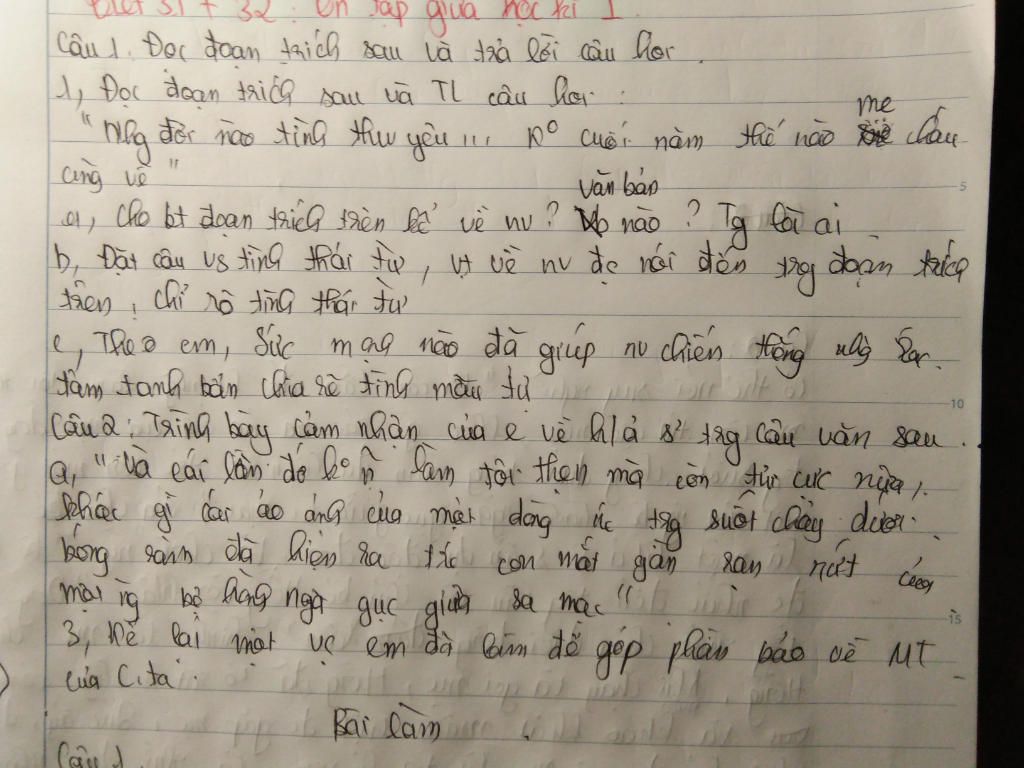 Tiết 31 + 32: Ôn tập giữa học kì 1
Câu 1. Đọc đoạn trích sau và trả lời câu hỏi.
1, Đọc đoạn trích sau và TL câu hỏi:
mẹ
"Nhg đời nào tình thư yêu ... Ko cuối năm thế nào cháu
cũng về"
văn bản
a, cho bt đoạn trích trên kể về nv? nào? Tg là ai
b, Đặt câu vs tình thái từ, vt về nv đc nói đến trg đoạn trích
trên, chỉ rõ tình thái từ
c, Theo em, sức mạnh nào đã giúp nv chiến thắng nhg
tâm tanh bẩn chia rẽ tình mẫu tử
Câu 2: Trình bày cảm nhận của e về h/ả s² trg câu văn sau.
a, "Và cái lầm đó ko n làm tôi thẹn mà còn tủi cực nữa,
khác gì cái ảo ảnh của một dòng nc trg suốt chảy dưới
bóng râm đã hiện ra trc con mắt gần rạn nứt của
một ng bộ hành ngã gục giữa sa mạc"
3, Kể lại một vc em đã làm để góp phần bảo vệ MT
của C.ta
Bài làm
Câu 1